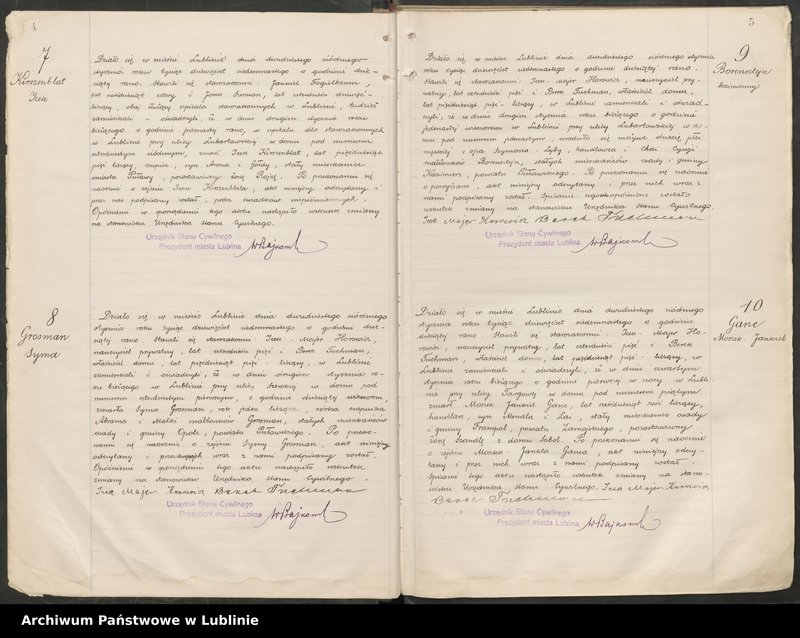 4
7
Kirszenblat
Icek
Działo się, w mieście Lublinie dnia dwudziestego siódmego
stycznia roku tysiąc dziewięćset siedemnastego o godzinie dzie-
siątej rano. Stawili się starozakonni: Jankiel Fogielbaum,
lat sześćdziesiąt cztery i Josek Surman, lat czterdzieści dziewięć-
liczący, obaj służący szpitala starozakonnych w Lublinie, tudzież
zamieszkali i oświadczyli, iż w dniu drugim stycznia roku
bieżącego o godzinie jedenastej rano, w szpitalu dla starozakonnych
w Lublinie przy ulicy Lubartowskiej w domu pod numerem
czterdziestym siódmym, zmarł Icek Kirszenblat, lat pięćdziesiąt
pięć liczący, kupiec, syn i Gołdy, stały mieszkaniec
miasta Puławy, pozostawiwszy żonę Rojzę. Po przekonaniu się
naocznie o zejściu Icka Kirszenblata, akt niniejszy odczytany i
przez nas podpisany został, gdyż świadkowie niepiśmienni.
Opóźnienie w sporządzeniu tego aktu nastąpiło wskutek zmiany
na stanowisku Urzędnika Stanu Cywilnego.
Urzędnik Stanu Cywilnego
Prezydent miasta Lublina WBajkowski
8
Grosman
Syma
Działo się w mieście Lublinie dnia dwudziestego siódmego
stycznia roku tysiąc dziewięćset siedemnastego o godzinie dzie-
siątej rano. Stawili się starozakonni Icek-Majer Horowicz,
nauczyciel prywatny, lat czterdzieści pięć i Berek Tuchman,
właściciel domu, lat pięćdziesiąt pięć-liczący, w Lublinie
zamieszkali i oświadczyli, że w dniu drugim stycznia ro-
ku bieżącego w Lublinie przy ulicy Szerokiej w domu pod
numerem czterdziestym pierwszym, o godzinie dziesiątej wieczorem,
zmarła Syma Grosman, rok jeden licząca, córka czapnika
Abrama i Matki małżonków Grosman, stałych mieszkańców
osady i gminy Opole, powiatu Puławskiego. Po przeko-
naniu się naocznie o zejściu Symy Grosman, akt niniejszy
odczytany i wraz z nami podpisany został.
Opóźnienie w sporządzeniu tego aktu nastąpiło wskutek
zmiany na stanowisku Urzędnika Stanu Cywilnego.
Icek Majer Horowicz Berek Tuchman
Urzędnik Stanu Cywilnego
Prezydent miasta Lublina WBajkowski
5
9
Borensztejn
bezimienny
Działo się, w mieście Lublinie, dnia dwudziestego siódmego stycznia
roku tysiąc dziewięćset siedemnastego o godzinie dziesiątej rano.
Stawili się starozakonni: Icek-Majer Horowicz, nauczyciel pry-
watny, lat czterdzieści pięć i Berek Tuchman, właściciel domu,
lat pięćdziesiąt pięć-liczący, w Lublinie zamieszkali i oświad-
czyli, iż w dniu drugim stycznia roku bieżącego o godzinie
jedenastej wieczorem w Lublinie przy ulicy Lubartowskiej w do-
mu pod numerem jedenastym, urodziło się nieżywe dziecię płci
męskiej, z ojca Szymona-Lejby, handlarza i Chai Cywji
małżonków Borensztejn, stałych mieszkańców osady i gminy
Kazimierz, powiatu Puławskiego. Po przekonaniu się naocznie
o powyższem, akt niniejszy odczytany i przez nich wraz z
nami podpisany został. Spisanie tego opóźnione zostało
wskutek zmiany na stanowisku Urzędnika Stanu Cywilnego.
Icek Majer Horowicz Berek Tuchman
Urzędnik Stanu Cywilnego
Prezydent miasta Lublina WBajkowski
10
Ganc
Moszek-Jankiel
Działo się w mieście Lublinie dnia dwudziestego siódmego
stycznia roku tysiąc dziewięćset siedemnastego o godzinie
dziesiątej rano. Stawili się starozakonni: Icek-Majer Ho-
rowicz, nauczyciel prywatny, lat czterdzieści pięć i Berek
Tuchman, właściciel domu, lat pięćdziesiąt pięć-liczący, w
Lublinie zamieszkali i oświadczyli, iż w dniu czwartym
stycznia roku bieżącego o godzinie pierwszej w nocy w Lubli-
nie przy ulicy Targowej w domu pod numerem piątym
zmarł Moszek Jankiel Ganc, lat sześćdziesiąt sześć liczący,
handlarz, syn Mendla i Łai, stały mieszkaniec osady
i gminy Frampol, powiatu Zamojskiego, pozostawiwszy
żonę Szandlę z domu Sobol. Po przekonaniu się naocznie
o zejściu Moszka-Jankla Ganca, akt niniejszy odczy-
tany i przez nich wraz z nami podpisany został.
Spisanie tego aktu nastąpiło wskutek zmiany na stano-
wisku Urzędnika Stanu Cywilnego. Icek Majer Horowicz
Berek Tuchman
Urzędnik Stanu Cywilnego
Prezydent miasta Lublina WBajkowski
Archiwum Państwowe w Lublinie